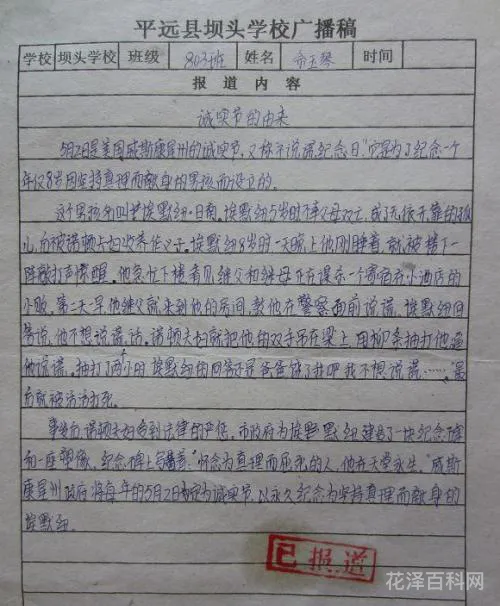 平远县坝头学校广播稿
学校 坝头学校 班级 803班 姓名 玉琴 时间
报道内容
诚实节的由来
5月2日是美国威斯康星州的诚实节,又称"不说谎纪念日"它是为了纪念一个
年仅8岁因坚持真理而献身的男孩而设立的。
这个男孩名叫埃默纽·日南。埃默纽5岁时不幸父母双亡,成了无依无靠的孤
儿,后被诺顿夫妇收养作义子。埃默纽8岁时一天晚上他刚睡着,就被楼下一
阵敲打声惊醒。他急忙下楼看见继父和继母正在谋杀一个寄宿在小酒店的
小贩。第二天一早他继父就来到他的房间,教他在警察面前说谎,埃默纽回
答说,他不想说谎话。诺顿夫妇就把他的双手吊在梁上,用柳条抽打他逼
他说谎。抽打了两小时埃默纽的回答还是爸爸饶了我吧我不想说谎……最
后就被活活打死。
事发后,诺顿夫妇受到法律的严惩。市政府为埃默纽建了一块纪念碑
和一座塑像,纪念碑上写着:"怀念为真理而屈死的人,他在天堂永生。"威斯
康星州政府将每年的5月2日定为诚实节,以永久纪念为坚持真理而献身的
埃默纽。
已报道
花泽百科网